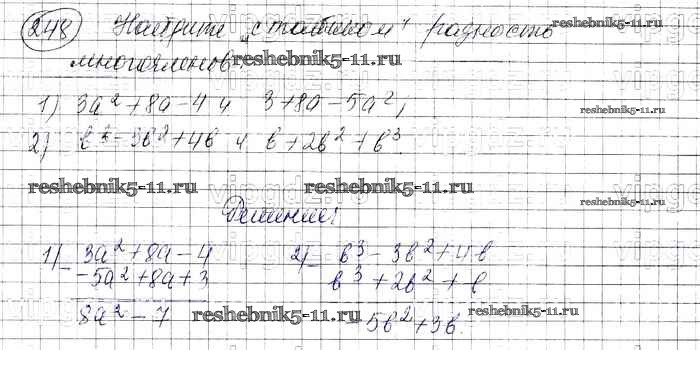 248 Найдите "столбиком" разность
многочленов:
reshebnik5-11.ru
reshebnik5-11.ru
1) 3a² + 8a - 4 и 3 + 8a - 5a²;
reshebnik5-11.ru
2) b³ - 3b² + 4b и b + 2b² + b³
reshebnik5-11.ru reshebnik5-11.ru
reshebnik5-11.ru
Решение:
1) - 3a² + 8a - 4 2) - b³ - 3b² + 4b
-5a² + 8a + 3 b³ + 2b² + b
8a² - 7 - 5b² + 3b.
reshebnik5-11.ru reshebnik5-11.ru